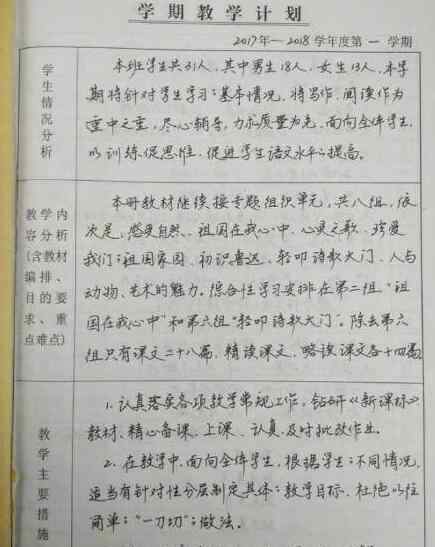 学期教学计划
2017年—2018学年度第一学期
学生情况分析
本班学生共31人，其中男生18人，女生13人，本学
期将针对学生学习的基本情况，将写作、阅读作为
重中之重，尽心辅导，力求质量为先，面向全体学生，
以训练促思维，促进学生语文水平的提高。
教学内
容分析
(含教材
编排、
目的要
求、重
点难点)
本册教材继续按专题组织单元，共八组，依
次是，感受自然、祖国在我心中、心灵之歌、珍爱
我们的祖国家园、初识鲁迅、轻叩诗歌大门、人与
动物、艺术的魅力。综合性学习安排在第二组"祖
国在我心中"和第六组"轻叩诗歌大门"。除去第六
组只有课文二十八篇，精读课文、略读课文各十四篇
教学主要措施
1. 认真落实各项教学常规工作，钻研《新课标》
教材、精心备课、上课、认真、及时批改作业。
2. 在教学中，面向全体学生，根据学生的不同情况，
适当有针对性分层制定具体的教学目标，杜绝以往
简单的"一刀切"的做法。